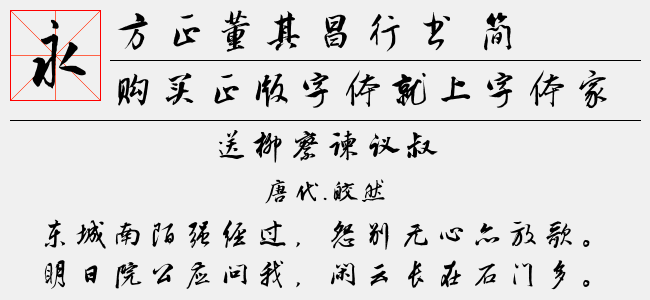 永
方正董其昌行书 简
购买正版字体就上字体家
送柳察谏议叔
唐代.皎然
东城南陌强经过，怨别无心亦放歌。
明日院公应问我，闲云长在石门多。